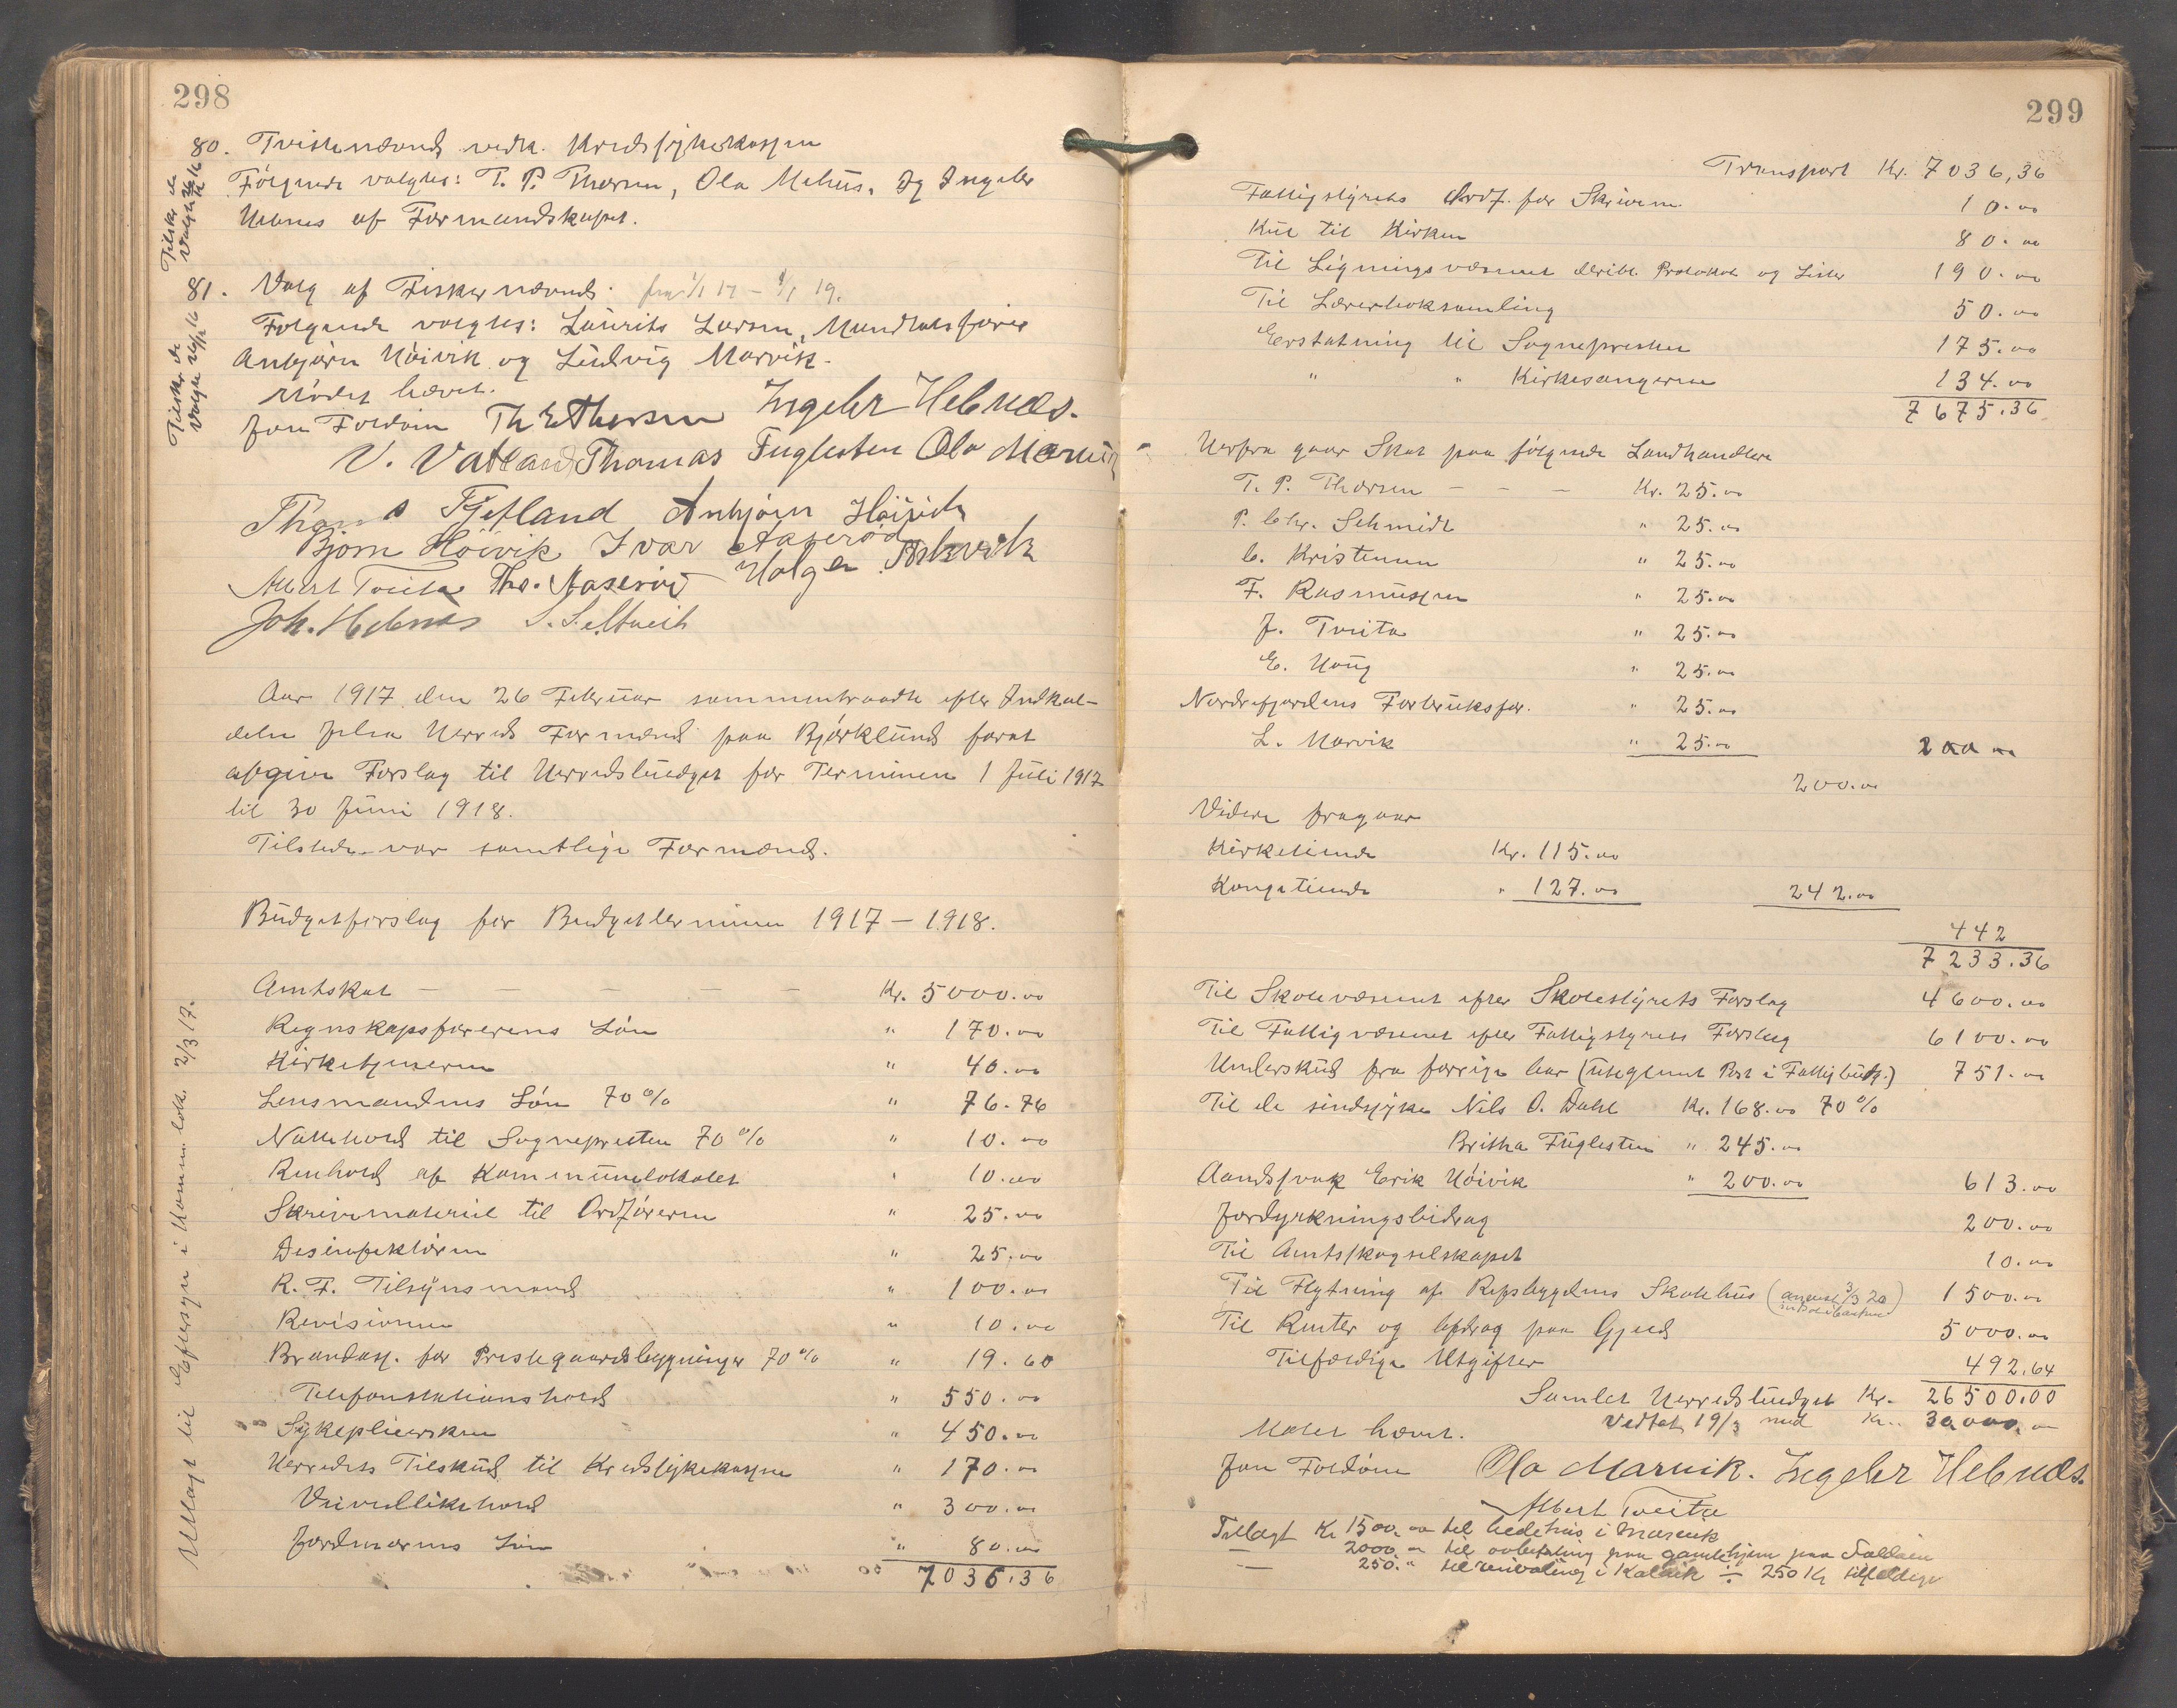 298
80. Tvistenævnd vedk. Kredssykekassen
Følgende valgtes: T. P. Thorsen, Ola Mehus. Og Ingebr
Hebnes af Formandskapet.
81. Valg af Fiskernævnd. fra 1/1 17 – 1/1 19.
Følgende valgtes: Laurits Larsen, Mandtalsfører
Anbjørn Høivik og Ludvig Marvik.
Mødet hævet.
Jon Foldøin Th E Thorsen Ingebr Hebnes.
V. Vatland Thomas Fuglesten Ola Marvik
Thomas Tjetland Anbjørn Høivik
Bjørn Høivik Ivar Aaserød
Albert Tveita Tho. Aaserød Holger Askvik
Joh. Hebnes
Tilsk. de
Valgte 16
Tilsk. de
Valgte 16
Aar 1917 den 26 Februar sammentraadte efter Indkal-
delse Jelsa Herreds Formænd paa Bjørklund forat
afgive Forslag til Herredsbudget for Terminen 1 Juli 1917
til 30 Juni 1918.
Tilstede var samtlige Formænd.
Budgetforslag for Budgetterminen 1917 – 1918.
Amtskat – – – – – Kr. 5000.00
Regnskapsførerens Løn " 170.00
Kirketjeneren " 40.00
Lensmandens Løn 70 % " 76.76
Nattehold til Sognepresten 70 % " 10.00
Renhold af Kommunelokalet " 10.00
Skrivemateriel til Ordføreren " 25.00
Desinfektøren " 25.00
R. F. Tilsynsmand " 100.00
Revisionen " 10.00
Brandass. for Prestegaardsbygninger 70 % " 19.60
Telefonstationshold " 550.00
Sykepleiersken " 450.00
Herredets Tilskud til Kredssykekassen " 170.00
Veivedlikehold " 300.00
Jordmorens Løn " 80.00
7036.36
Utlagt til Eftersyn i Komm. lok. 2/3 17.
299
Transport Kr. 7036,36
Fattigstyrets Ordf. for Skriveren 10.00
Kul til Kirken 80.00
Til Ligningsvæsenet deribl. Protokol og Lister 190.00
Til Lærerboksamling 50.00
Erstatning til Sognepresten 175.00
" " Kirkesangeren 134.00
7675.36
Herfra gaar Skat paa følgende Landhandlere
T. P. Thorsen – – – Kr. 25.00
P. Chr. Schmidt " 25.00
C. Kristensen " 25.00
F. Rasmussen " 25.00
J. Tveita " 25.00
E. Haug " 25.00
Nordrefjordens Forbruksfor. " 25.00
L. Marvik " 25.00 200 00
200.00
Videre fragaar
Kirketiende Kr. 115.00
Kongetiende " 127.00 242.00
442
7233.36
Til Skolevæsenet efter Skolestyrets Forslag 4600.00
Til Fattigvæsenet efter Fattigstyrets Forslag 6100.00
Underskud fra forrige Aar (uteglemt Post i Fattigbudg.) 751.00
Til de sindssyke Nils O. Dahl Kr. 168.00 70 %
Britha Fuglesten " 245.00
Aandssvak Erik Høivik " 200.00 613.00
Jordyrkningsbidrag 200.00
Til Amtsskogselskapet 10.00
Til Flytning af Repsbygdens Skolehus ( 3/3 20 ) 1500.00
Til Renter og Afdrag paa Gjeld 5000.00
Tilfældige Utgifter 492,64
Samlet Herredsbudget Kr. 26500.00
Vedtat 19/3 med Kr. 30,000.00
Møtet hævet.
Jon Foldøin Ola Marvik. Ingebr Hebnes.
Albert Tveita
Tillagt Kr 1500.00 til bedehus i Marvik
2000.00 til avbetaling paa gamlehjem paa Foldøin
— 250. " til veivøling i Kalvik ÷ 250 Kr tilfeldige